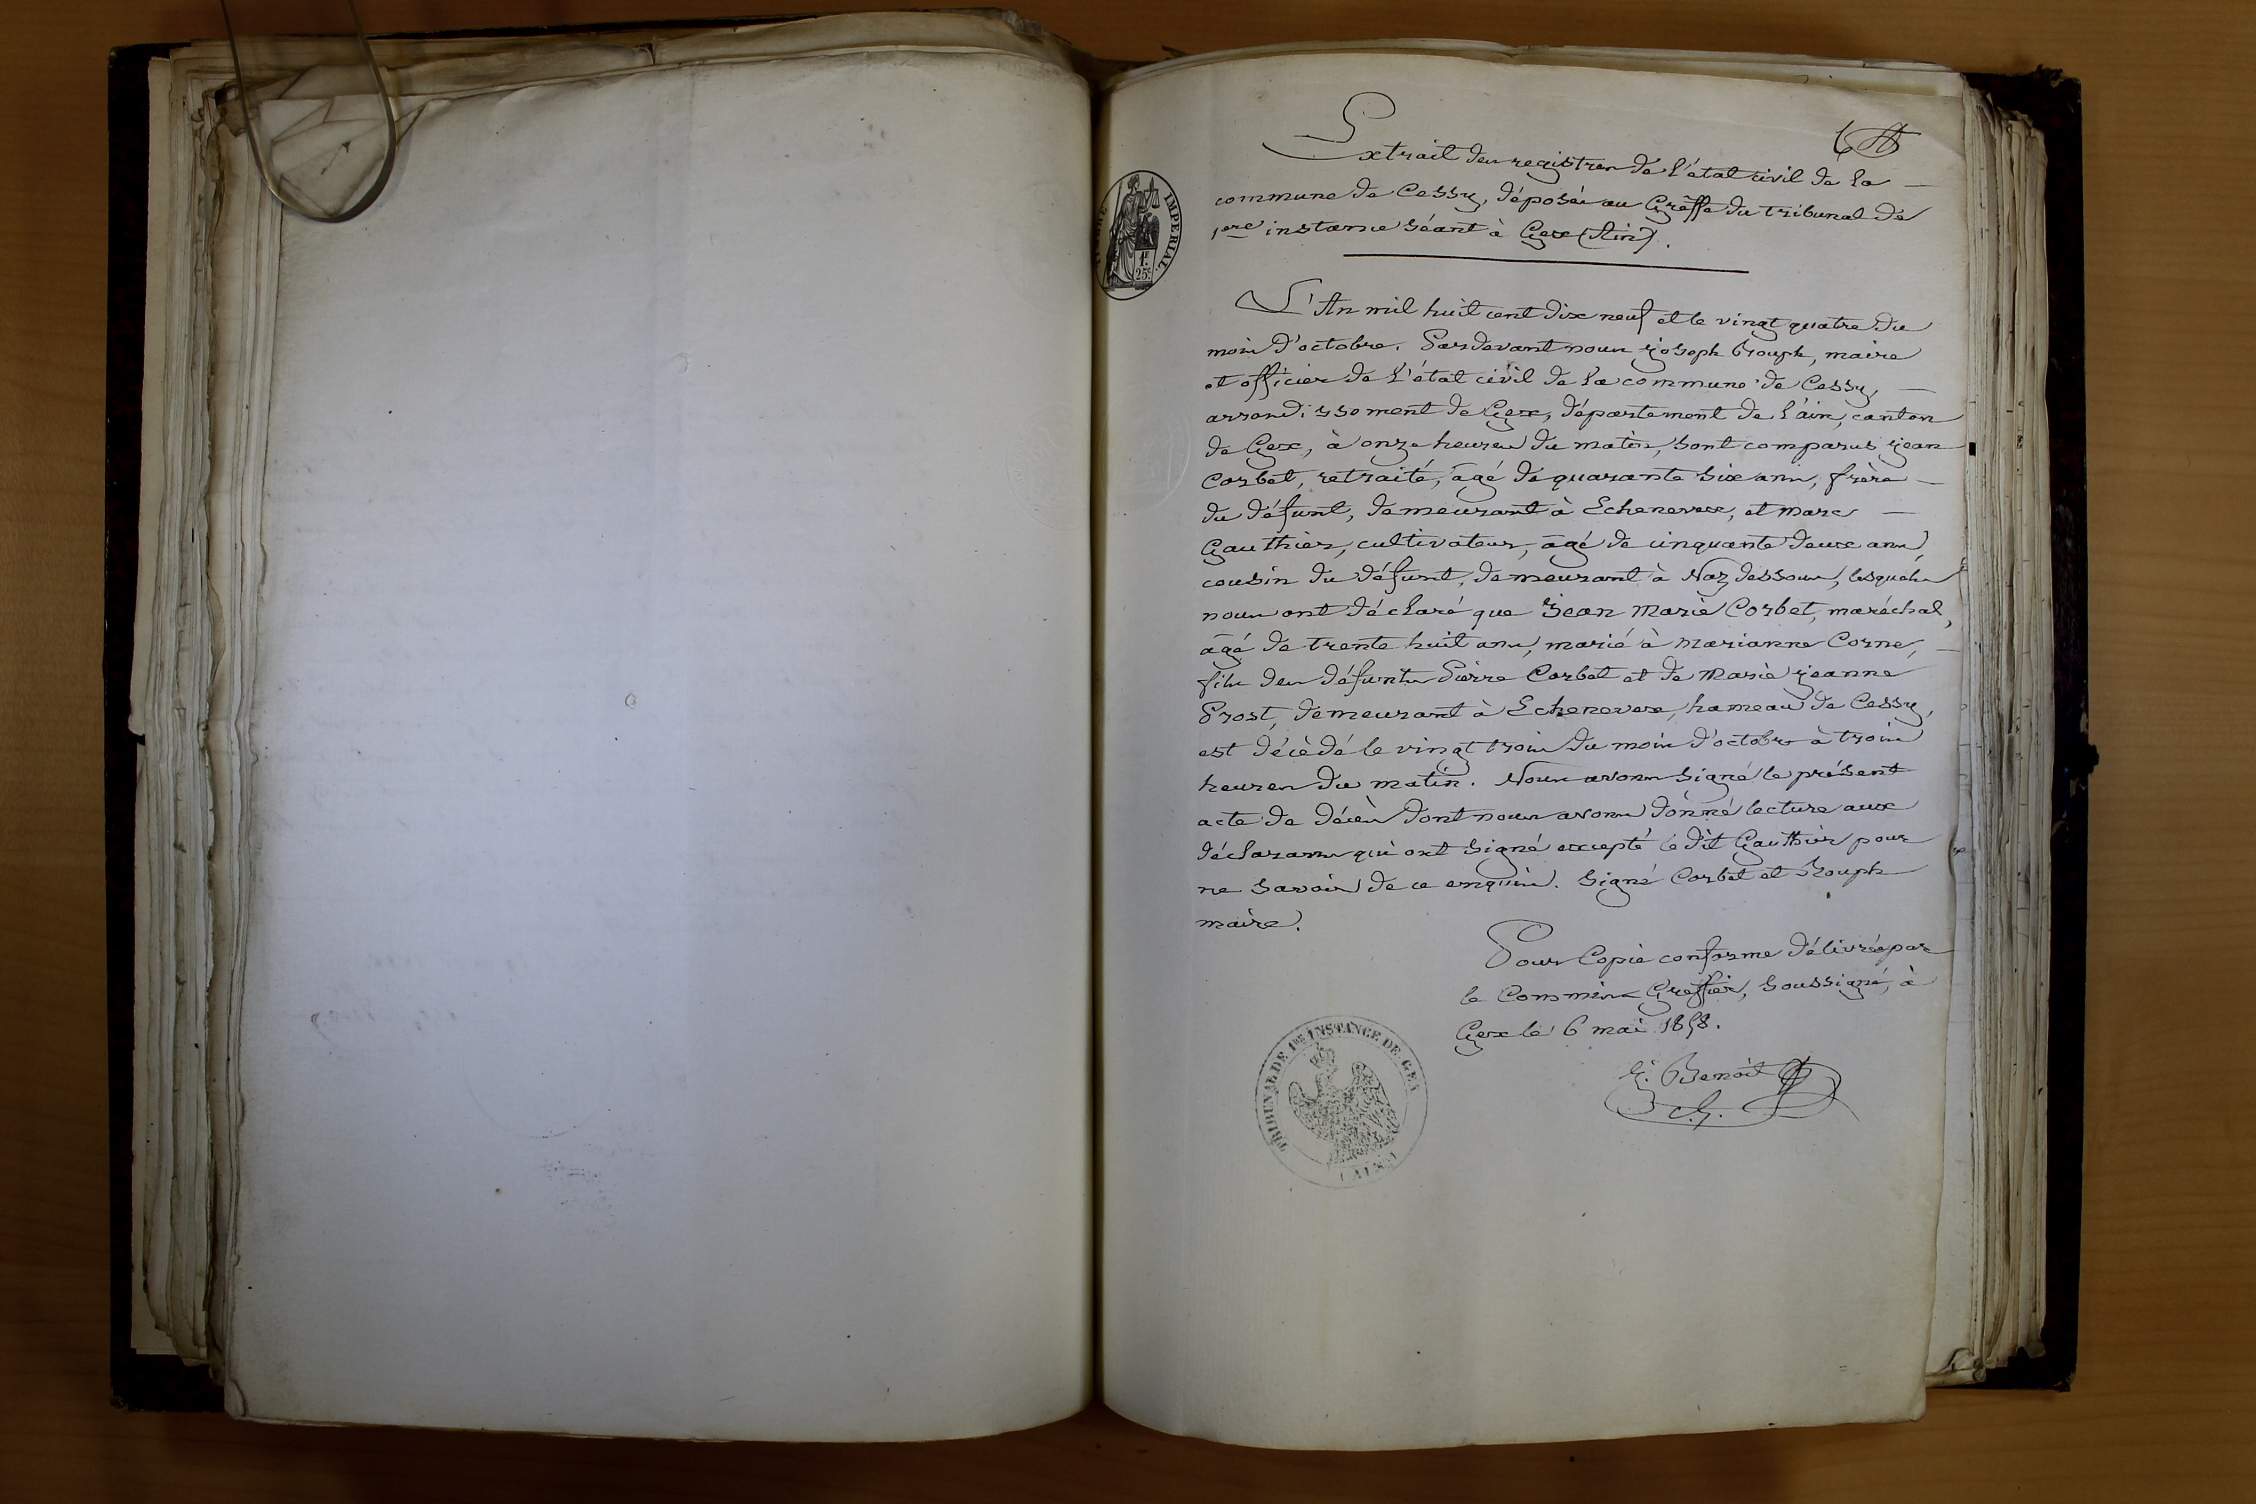 Extrait des registres de l'état civil de la
commune de Cessy, déposés au Greffe du tribunal de
1ere instance séant à Gex (Ain).
IMPERIAL
1F.
25c.
L'An mil huit cent dix neuf et le vingt quatre du
mois d'octobre. Pardevant nous joseph Rouph, maire
et officier de l'état civil de la commune de Cessy,
arrondissement de Gex, département de l'ain, canton
de Gex, à onze heures du matin, sont comparus jean
Corbet, retraité, âgé de quarante six ans, frère
du défunt, demeurant à Echenevex, et marc
Gauthier, cultivateur, âgé de cinquante deux ans,
cousin du défunt, demeurant à Naz dessous, lesquels
nous ont déclaré que Jean Marie Corbet, maréchal,
âgé de trente huit ans, marié à marianne Corne,
fils des défunts Pierre Corbet et de Marie jeanne
Prost, demeurant à Echenevex, hameau de Cessy,
est décèdé le vingt trois du mois d'octobre à trois
heures du matin. Nous avons signé le présent
acte de décès dont nous avons donné lecture aux
déclarans qui ont signé excepté le dit Gauthier pour
ne savoir de ce enquis. Signé Corbet et Rouph
maire.
Pour Copie conforme délivrée par
le Commis Greffier, soussigné, à
Gex le 6 mai 1858.
G. Benoit
TRIBUNAL DE 1re INSTANCE DE GEX
(AIN)